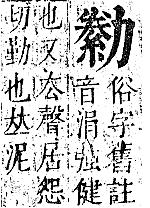 俗字舊註
音涓強健
也又厺聲居怨
切勤也夶泥